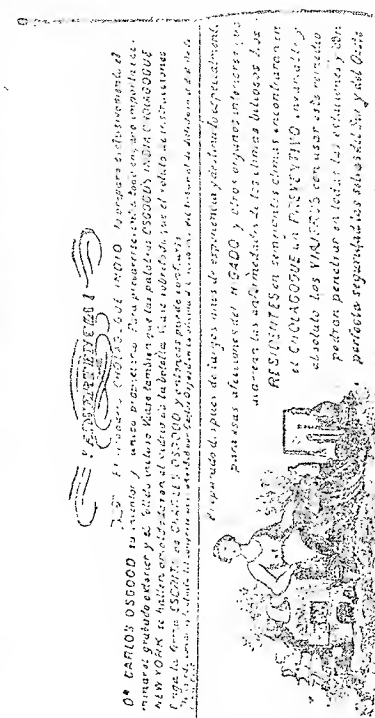 ¡ADVERTENCIA!
El genuino CHOLAGOGUE INDIO, lo prepara esclusivamente el
Dr. CARLOS OSGOOD su inventor y unico propietario. Para precaverse contra todo engaño importa exa-
minar el grabado exterior y el Vidrio mismo Vease tambien que las palabras OSGOOD'S INDIA CHOLAGOGUE
NEW YORK se hallen amoldadas en el vidrio de la botella. Vease sobretodo que el rotulo de instrucciones
tenga la firma ESCRITA de CHARLES OSGOOD y entonces puede confiarse
Preparado despues de largos años de esperiencia y destinado especialmente
para esas afecciones del HIGADO y otros organos interiores que
marcan las enfermedades de los climas biliosos Los
RESIDENTES en semejantes climas encontraran en
el CHOLAGOGUE un PREVENTIVO invariable y
absoluto los VIAJEROS con usar este remedio
podran penetrar en todas las estaciones y con
perfecta seguridad las selvas del Sur y del Oeste